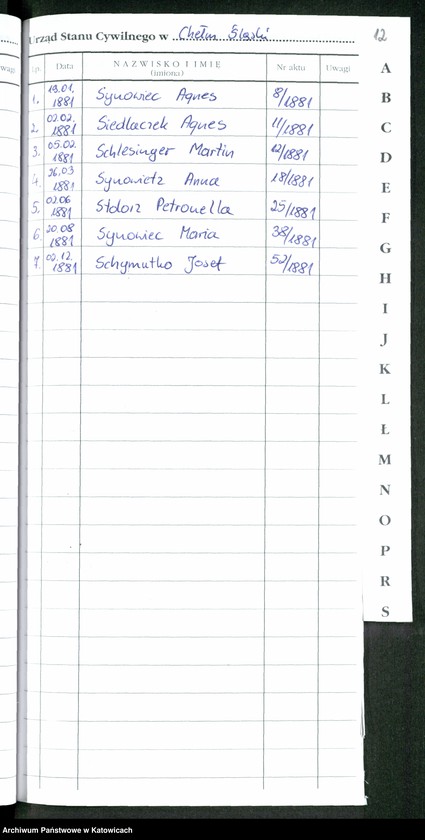 Urząd Stanu Cywilnego w Chełm Śląski
12
Lp. Data NAZWISKO I IMIĘ (imiona) Nr aktu Uwagi
1. 19.01.1881 Synowiec Agnes 8/1881
2. 02.02.1881 Siedlaczek Agnes 11/1881
3. 05.02.1881 Schlesinger Martin 12/1881
4. 26.03 1881 Synowietz Anna 18/1881
5. 02.06 1881 Stolorz Petronella 25/1881
6. 20.08 1881 Synowiec Maria 38/1881
7. 02.12.1881 Schymutko Josef 52/1881
A
B
C
D
E
F
G
H
I
J
K
L
Ł
M
N
O
P
R
S
Archiwum Państwowe w Katowicach